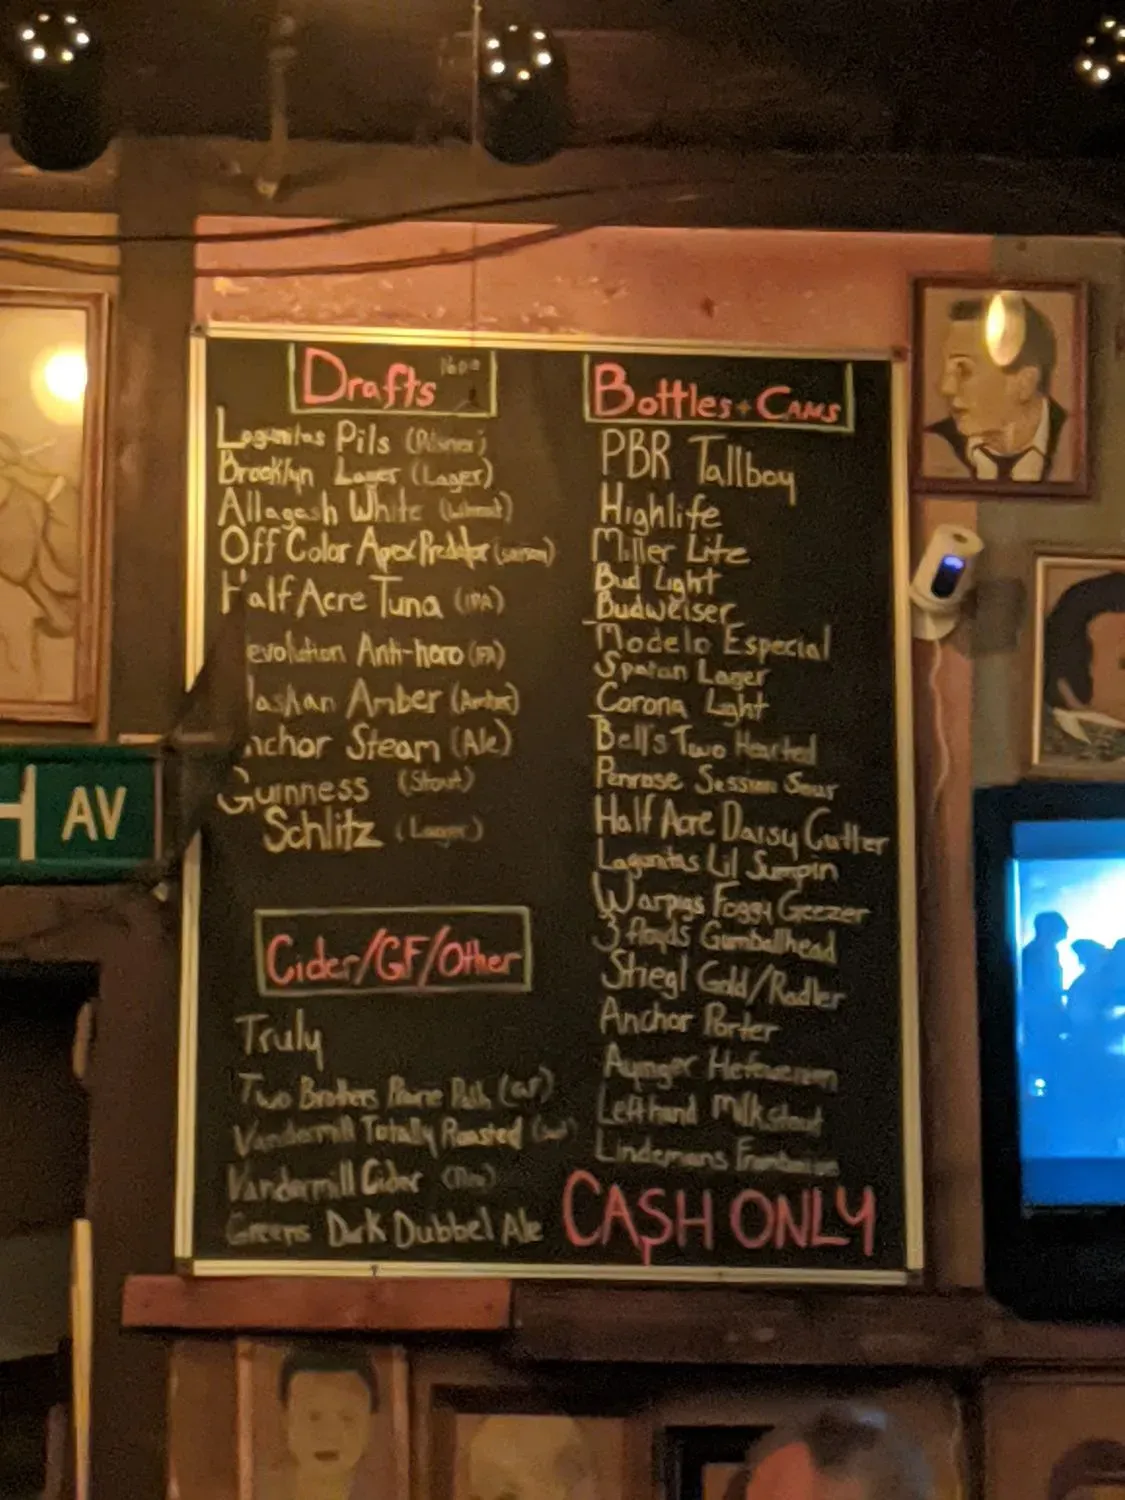 Drafts
Lagunitas Pils (Pilsner)
Brooklyn Lager (Lager)
Allagash White (Wheat)
Off Color Apex Predator (saison)
Half Acre Tuna (IPA)
evolution Anti-hero (IPA)
Amber (Amber)
nchor Steam (Ale)
Guinness (Stout)
Schlitz (Lager)
Cider/GF/Other
Truly
Two Brothers Prairie Path (GF)
Vandermill Totally Roasted
Vandermill Cider
Greens Dark Dubbel Ale
Bottles + Cans
PBR Tallboy
Highlife
Miller Lite
Bud Light
Budweiser
Modelo Especial
Lager
Corona Light
Bell's Two Hearted
Penrose Session Sour
Half Acre Daisy Cutter
Lagunitas Lil Sumpin
Warpigs Foggy Geezer
3 floyds Gumballhead
Stiegl Gold/Radler
Anchor Porter
Ayinger Hefeweizen
Lefthand Milkstout
Lindemans Framboise
CASH ONLY
H AV